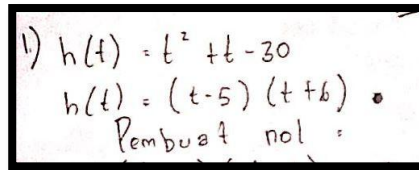 1.) h(t) = t² + t - 30
h(t) = (t-5) (t+6)
Pembuat nol =